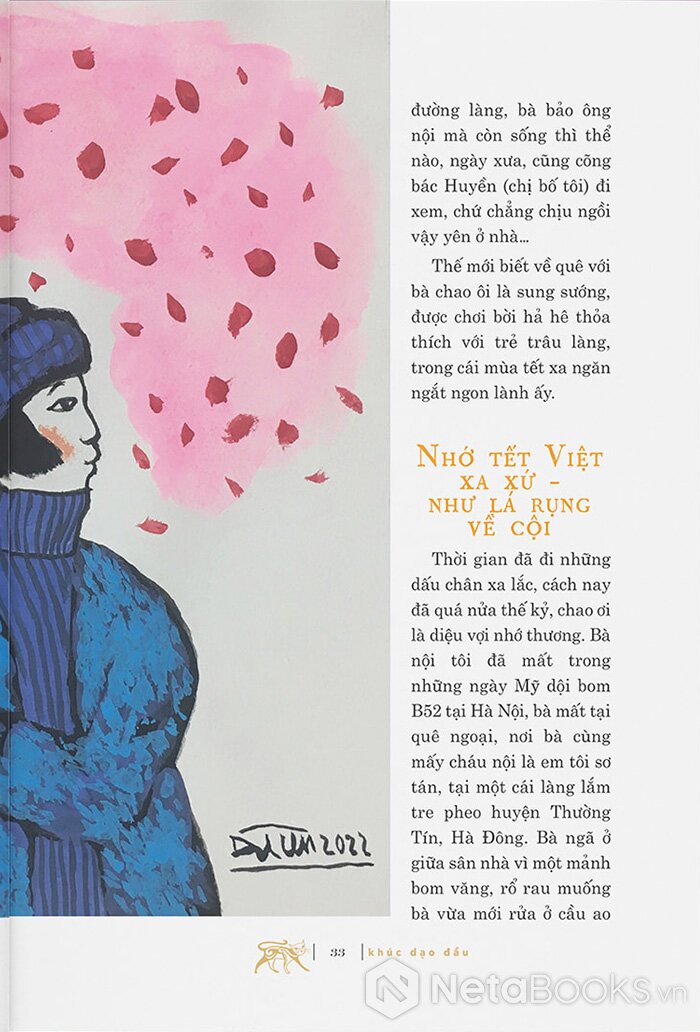 đường làng, bà bảo ông
nội mà còn sống thì thể
nào, ngày xưa, cũng cõng
bác Huyền (chị bố tôi) đi
xem, chứ chẳng chịu ngồi
vậy yên ở nhà...
Thế mới biết về quê với
bà chao ôi là sung sướng,
được chơi bời hả hê thỏa
thích với trẻ trâu làng,
trong cái mùa tết xa ngăn
ngắt ngon lành ấy.
NHỚ TẾT VIỆT
XA XỨ –
NHƯ LÁ RỤNG
VỀ CỘI
Thời gian đã đi những
dấu chân xa lắc, cách nay
đã quá nửa thế kỷ, chao ơi
là diệu vợi nhớ thương. Bà
nội tôi đã mất trong
những ngày Mỹ dội bom
B52 tại Hà Nội, bà mất tại
quê ngoại, nơi bà cùng
mấy cháu nội là em tôi sơ
tán, tại một cái làng lắm
tre pheo huyện Thường
Tín, Hà Đông. Bà ngã ở
giữa sân nhà vì một mảnh
bom văng, rổ rau muống
bà vừa mới rửa ở cầu ao
2022
33 khúc dạo đầu
NetaBooks.vn